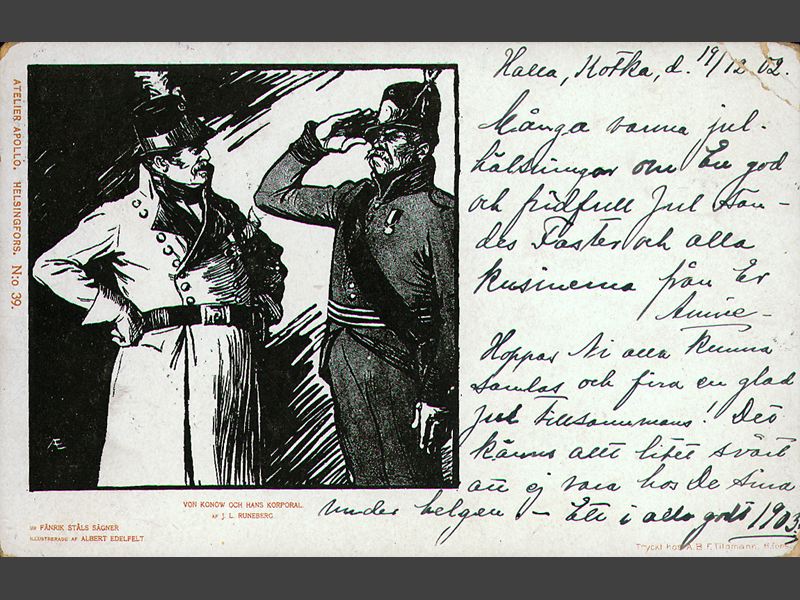 ATELIER APOLLO. HELSINGFORS. N:o 39.
Halla, Kotka, d. 19/12 02.
Många varma jul-
hälsningar om En god
och fridfull Jul sän-
des Faster och alla
kusinerna från Er
Annie-
Hoppas Ni alla kunna
samlas och fira en glad
jul tillsammans! Det
känns allt litet svårt
att ej vara hos De sina
under helgen – Ett i allo godt 1903.
VON KONOW OCH HANS KORPORAL.
AF J. L. RUNEBERG.
UR FÄNRIK STÅLS SÄGNER
ILLUSTRERADE AF ALBERT EDELFELT.
Tryckt hos A. B. F. Tilgmann, H:fors
AE